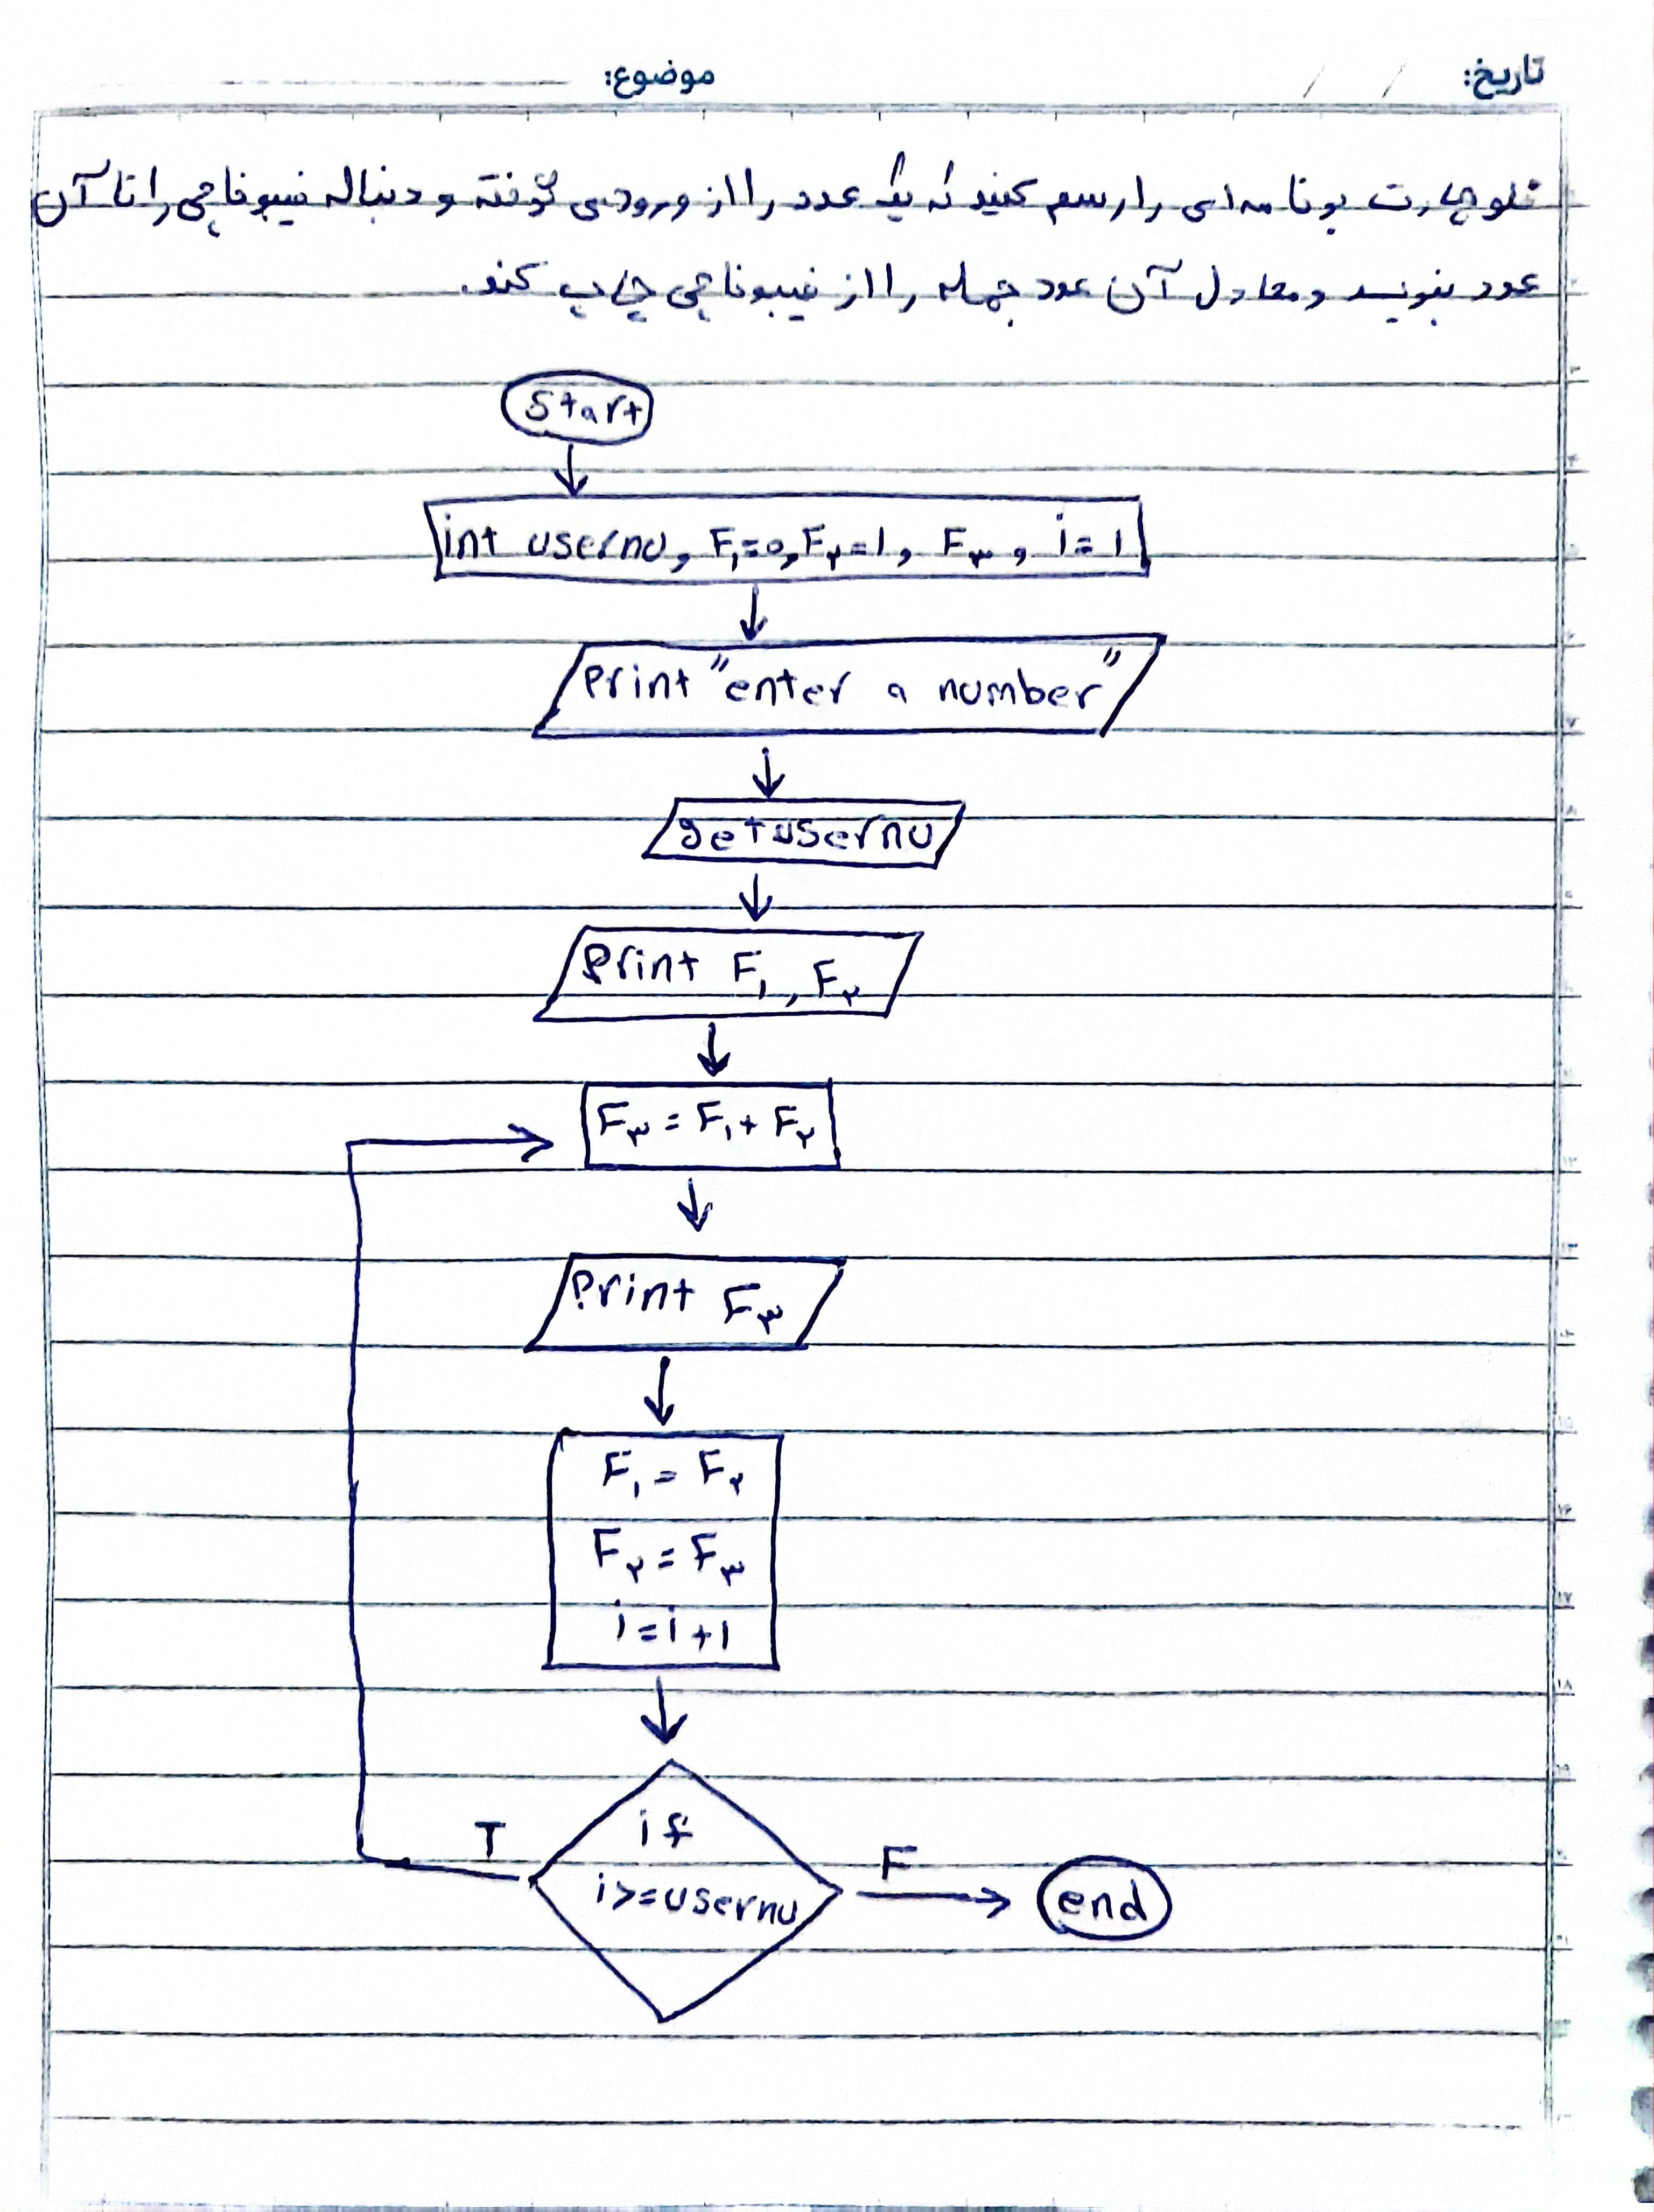 تاریخ: / / موضوع:
فلوچارت برنامه‌ای را رسم کنید که یک عدد را از ورودی گرفته و دنباله فیبوناچی را تا آن
عدد بنویسد و معادل آن عدد جمله را از فیبوناچی چاپ کند.
Start
int usernu, F₁=0, F۲=1, F۳, i=1
Print "enter a number"
get usernu
Print F₁, F۲
F۳ = F₁ + F۲
Print F۳
F₁ = F۲
F۲ = F۳
i = i + 1
if
T F
i>=usernu end